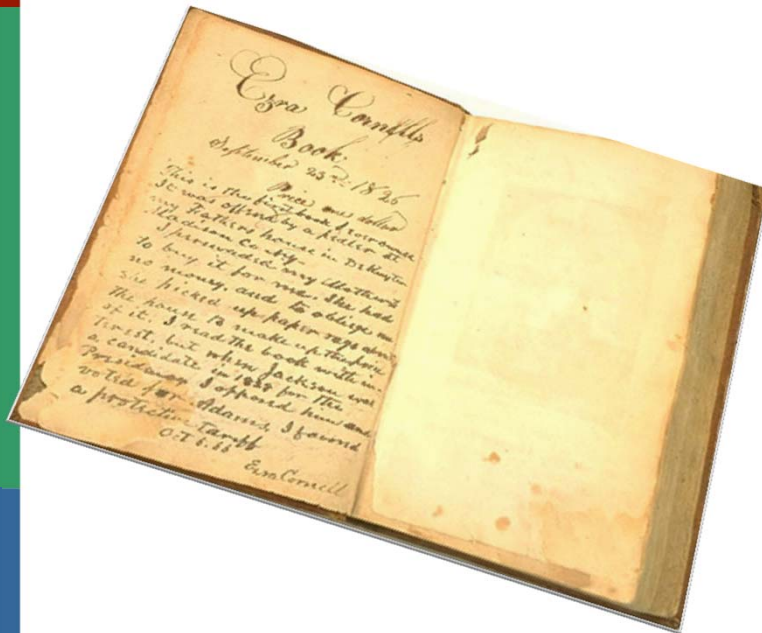 Ezra Cornell's
Book,
September 23rd 1826
Price one dollar
This is the first book I ever owned
It was offered by a pedler at
my Fathers house in DeRuyter
Madison County.
I persuaded my Mother
to buy it for me. She had
no money, and to oblige me
she picked up paper rags about
the house to make up the price
of it. I read the book with in-
terest, but when Jackson was
a candidate in 1828 for the
Presidency I opposed him and
voted for Adams, I favored
a protective tariff
Oct
Ezra Cornell